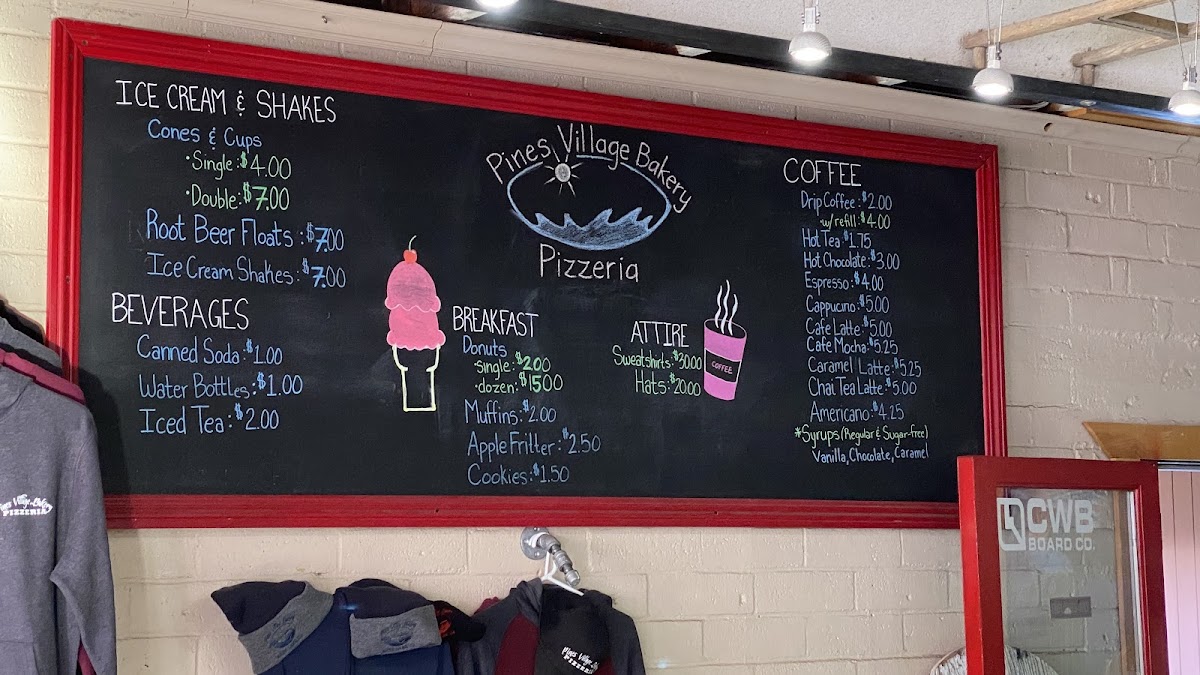 ICE CREAM & SHAKES
Cones & Cups
•Single:$4.00
•Double:$7.00
Root Beer Floats:$7.00
Ice Cream Shakes:$7.00
BEVERAGES
Canned Soda:$1.00
Water Bottles:$1.00
Iced Tea:$2.00
Pines Village Bakery
Pizzeria
BREAKFAST
Donuts
•single:$2.00
•dozen:$15.00
Muffins:$2.00
Apple Fritter:$2.50
Cookies:$1.50
ATTIRE
Sweatshirts:$30.00
Hats:$20.00
COFFEE
COFFEE
Drip Coffee:$2.00
w/refill:$4.00
Hot Tea:$1.75
Hot Chocolate:$3.00
Espresso:$4.00
Cappucino:$5.00
Cafe Latte:$5.00
Cafe Mocha:$5.25
Caramel Latte:$5.25
Chai Tea Latte:$5.00
Americano:$4.25
*Syrups (Regular & Sugar-free)
Vanilla, Chocolate, Caramel
CWB
BOARD CO.
Pines Village Bakery
PIZZERIA
Pines Village
PIZZERIA